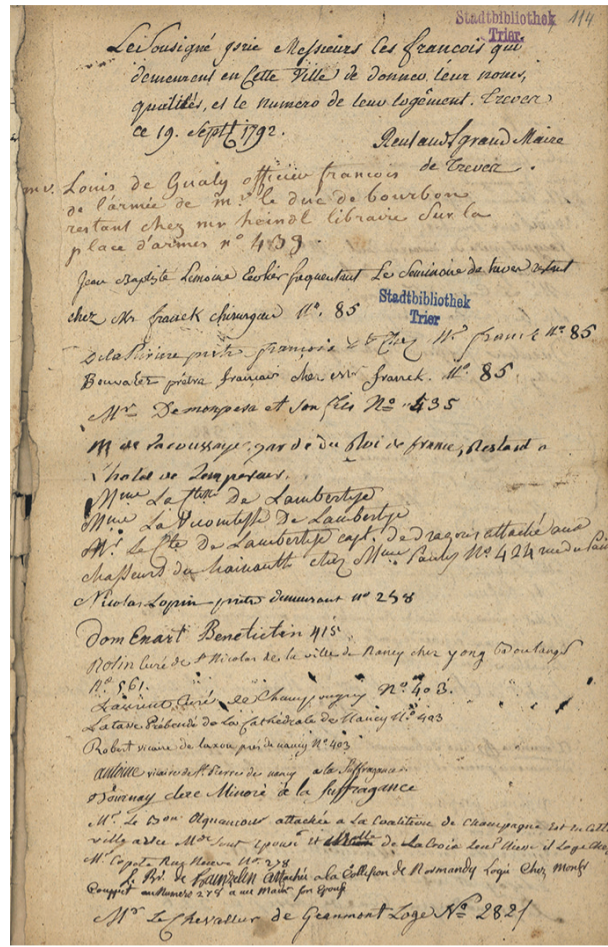 Stadtbibliothek
Trier.
114
Le Sousigné prie Messieurs les francois qui
demeurent en Cette Ville de donner leur noms,
qualités, et le numero de leur logêment. Trever
ce 19. Septb 1792.
Reuland grand Maire
de Trever.
mr. Louis de Gualy officier francois
de l'armée de mr. le duc de bourbon
restant chez mr heindl libraire sur la
place d'armes n° 433.
Jean Baptiste Lemoine frequentant Le Seminaire de trever restant
chez Mr franck chirurgien N°. 85
Stadtbibliothek
Trier
prêtre françois chez Mr franck N° 85
prêtre francais chez Mr franck. N° 85.
Mr Demonpera et son fils N° 435
M de garde du Roi de france, Restant a
l'hotel de Lempereur.
Mme La Ctesse De Lambertye
Mme La Vicomtesse De Lambertye
Mr. le Cte De Lambertye capt. de dragons attaché aux
chasseurs du hainault chez Mme Pauly N° 424 rue du
Nicolas prêtre demeurant n° 278
Dom Enart Benetictin 415
Rolin Curé de St Nicolas de la ville de Nancy chez yong Boulanger
N° 561.
Laurent Curé de Champougny N° 403.
Latasse Prébendé de La Cathédrale de Nancy N° 403
Robert vicaire de laxou près de nancy N° 403
antoine vicaire de St. Pierre de nancy a la Suffragance
Tournay clerc Minoré à la Suffragance
Mr. Le Bon attachée a La Coalition de Champagne est en Cette
ville avec Mde son Epouse et de La Croix il Loge Chez
Mr N° 278
Le Br. de attachée a la Coallision de Normandy Logé Chez
au Numero 278 a
Mr Le Chevallier de Geanmont Loge N° 282